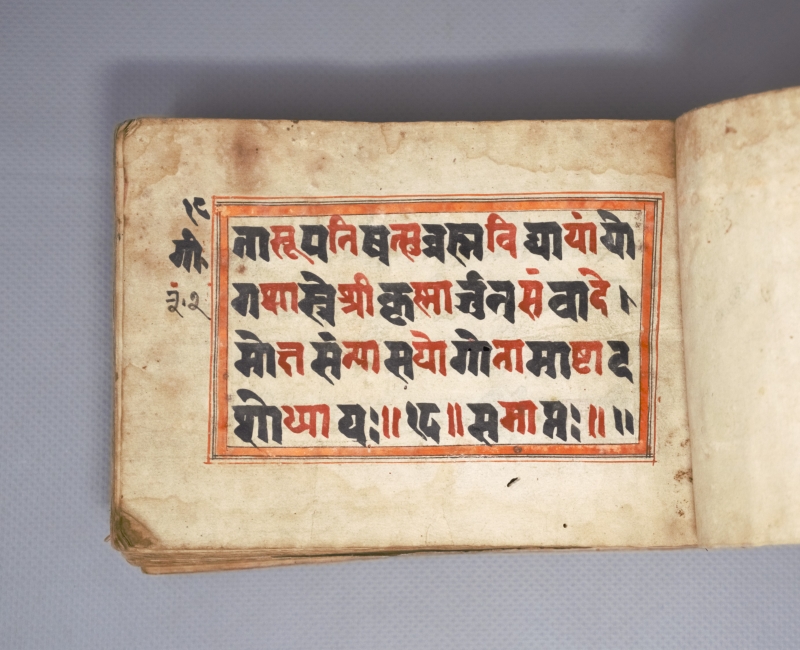 १८
गी.
२२
तासूपनिषत्सुब्रह्मविद्यायांयो
गशास्त्रेश्रीकृस्मार्जुनसंवादे।
मोक्षसंन्यासयोगोनामाष्टाद
शोध्यायः॥१८॥समाप्तः॥॥